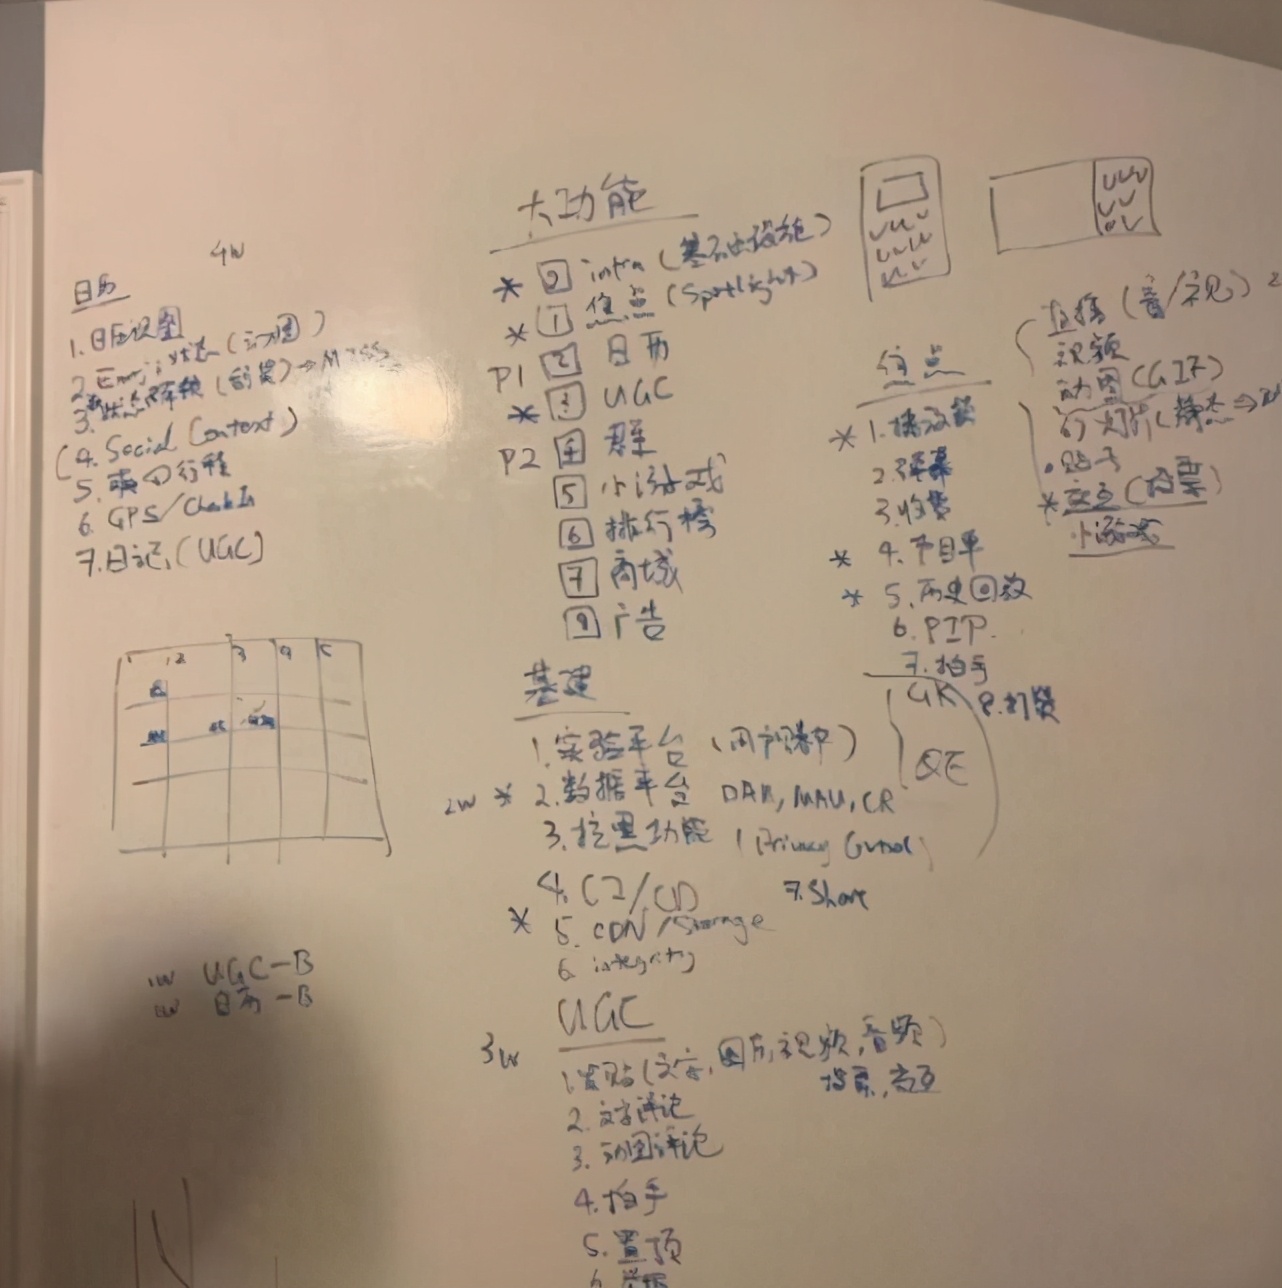 4W
日历
1. 日历视图
2. Emoji 状态 (动图)
3. 状态
(4. Social Context)
5. 行程
6. GPS/Check In
7. 日记 (UGC)
1 2 3 4 5
1W UGC-B
日历-B
大功能
* 0 infra (基础设施)
* 1 焦点 (Spotlight)
P1 2 日历
* 3 UGC
P2 4 群
5 小游戏
6 排行榜
7 商城
8 广告
基建
1. 实验平台
2W * 2. 数据平台 DAU, MAU, CR
3. 拉黑功能 (Privacy Control)
4. CI/CD
7. Share
* 5. CDN/Storage
6. integrity
GK
QE
UGC
3W
1. 发帖 (文字, 图片, 视频, 音频)
投票, 交互
2. 文字评论
3. 动图评论
4. 拍手
5. 置顶
6.
焦点
* 1. 播放器
2. 弹幕
3. 收费
* 4. 节目单
* 5. 历史回放
6. PIP
7. 拍手
8. 打赏
直播 (音/视)
视频
动图 (GIF)
幻灯片 (静态⇒
贴子
* 交互 (投票)
小游戏